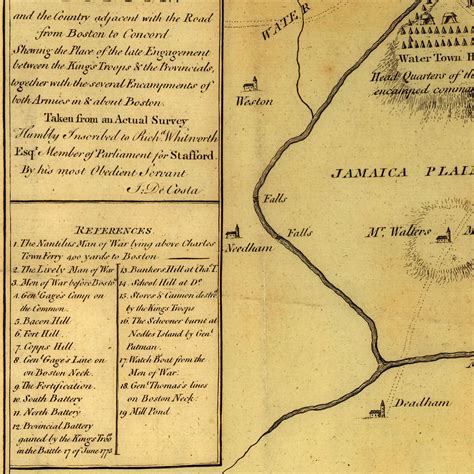 and the Country adjacent with the Road
from Boston to Concord
Shewing the Place of the late Engagement
between the Kings Troops & the Provincials,
together with the several Encampments of
both Armies in & about Boston.
Taken from an Actual Survey
Humbly Inscribed to Richd. Whitworth
Esqr. Member of Parliament for Stafford.
By his most Obedient Servant
I: De Costa
REFERENCES
1. The Nautilus Man of War lying above Charles
Town Ferry 400 yards to Boston
2. The Lively Man of War
3. Men of War before Bosto
4. Genl. Gage's Camp on
the Common.
5. Bacon Hill
6. Fort Hill
7. Copps Hill
8. Genl. Gage's Line on
on Boston Neck.
9. The Fortification.
10. South Battery
11. North Battery
12. Provincial Battery
gained by the Kings Troo
in the Battle 17 of June 1775
13. Bunkers Hill at Cha. T.
14. School Hill at Do.
15. Stores & Cannon destro
by the Kings Troops
16. The Schooner burnt at
Nodles Island by Genl.
Putman.
17. Watch Boat from the
Men of War.
18. Genl. Thomas's lines
on Boston Neck.
19. Mill Pond
WATER
Weston
Water Town H
Head Quarters of the
encamped comman
JAMAICA PLAIN
Falls
Falls
Needham
Mr. Walters
Deadham